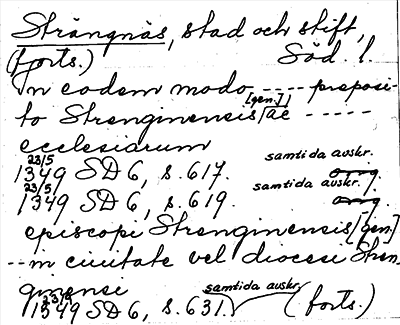 Strängnäs, stad och stift,
(forts.) Söd. l.
In eodem modo ---- preposi-
to Strenginensis [gen.] /ae -----
ecclesiarum
23/5 samtida avskr.
1349 SD 6, s. 617. orig.
23/5 samtida avskr.
1349 SD 6, s. 619. orig.
episcopi Strenginensis [gen.]
-- in ciuitate vel diocesi Stren-
ginensi
samtida avskr.
1349 SD 6, s. 631. (forts.)